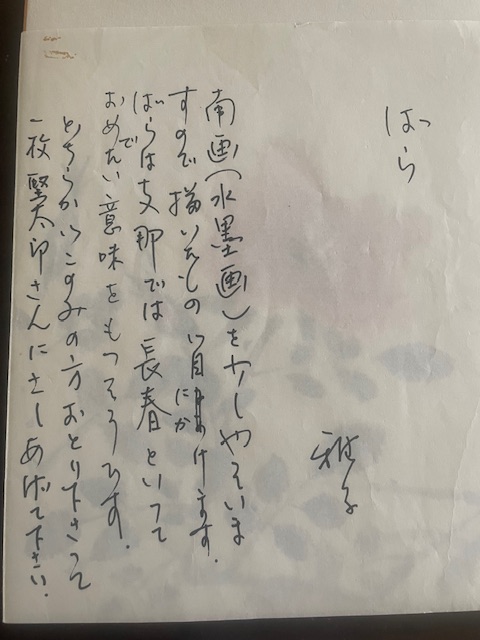 ばら
雅子
南画(水墨画)を少しやっていま
すので描いたもの御目にかけます。
ばらは支那では長春といって
おめでたい意味をもつそうです。
どちらかおこのみの方おとり下さって
一枚堅太郎さんにさしあげて下さい。